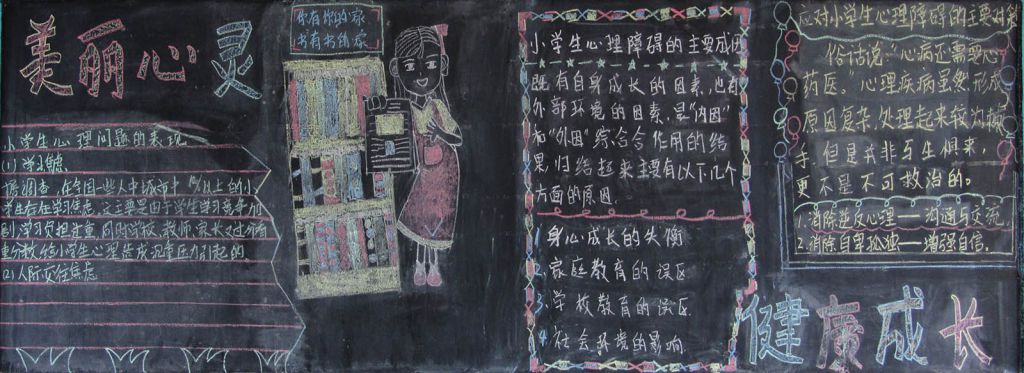 美丽心灵
小学生心理问题的表现
(1)学习焦虑
据调查,在全国一些人中城市中 以上的小
学生存在学习焦虑,这主要是由于学生学习竞争加
剧学习负担过重,同时学校、教师、家长过分看
重分数,给小学生心理造成沉重压力引起的
(2)人际交往焦虑
你有你的家
书有书的家
小学生心理障碍的主要成因
既有自身成长的因素,也有
外部环境的因素,是“内因”
和“外因”综合合作用的结
果,归结起来主要有以下几个
方面的原因.
1身心成长的失衡
2.家庭教育的误区
3.学校教育的误区.
4.社会环境的影响.
应对小学生心理障碍的主要对策
俗话说:“心病还需要心
药医。”心理疾病虽然形成
原因复杂,处理起来较为棘
手,但是并非与生俱来,
更不是不可救治的。
1.消除逆反心理——沟通与交流
2.消除自卑孤独——增强自信.
健康成长